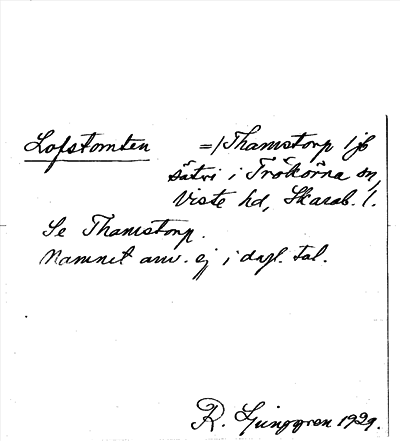 Lofstomten =/Thamstorp 1/8
sätri i Trökörna sn,
Viste hd, Skarab. l.
Se Thamstorp.
Namnet anv. ej i dagl. tal.
R. Ljunggren 1929.